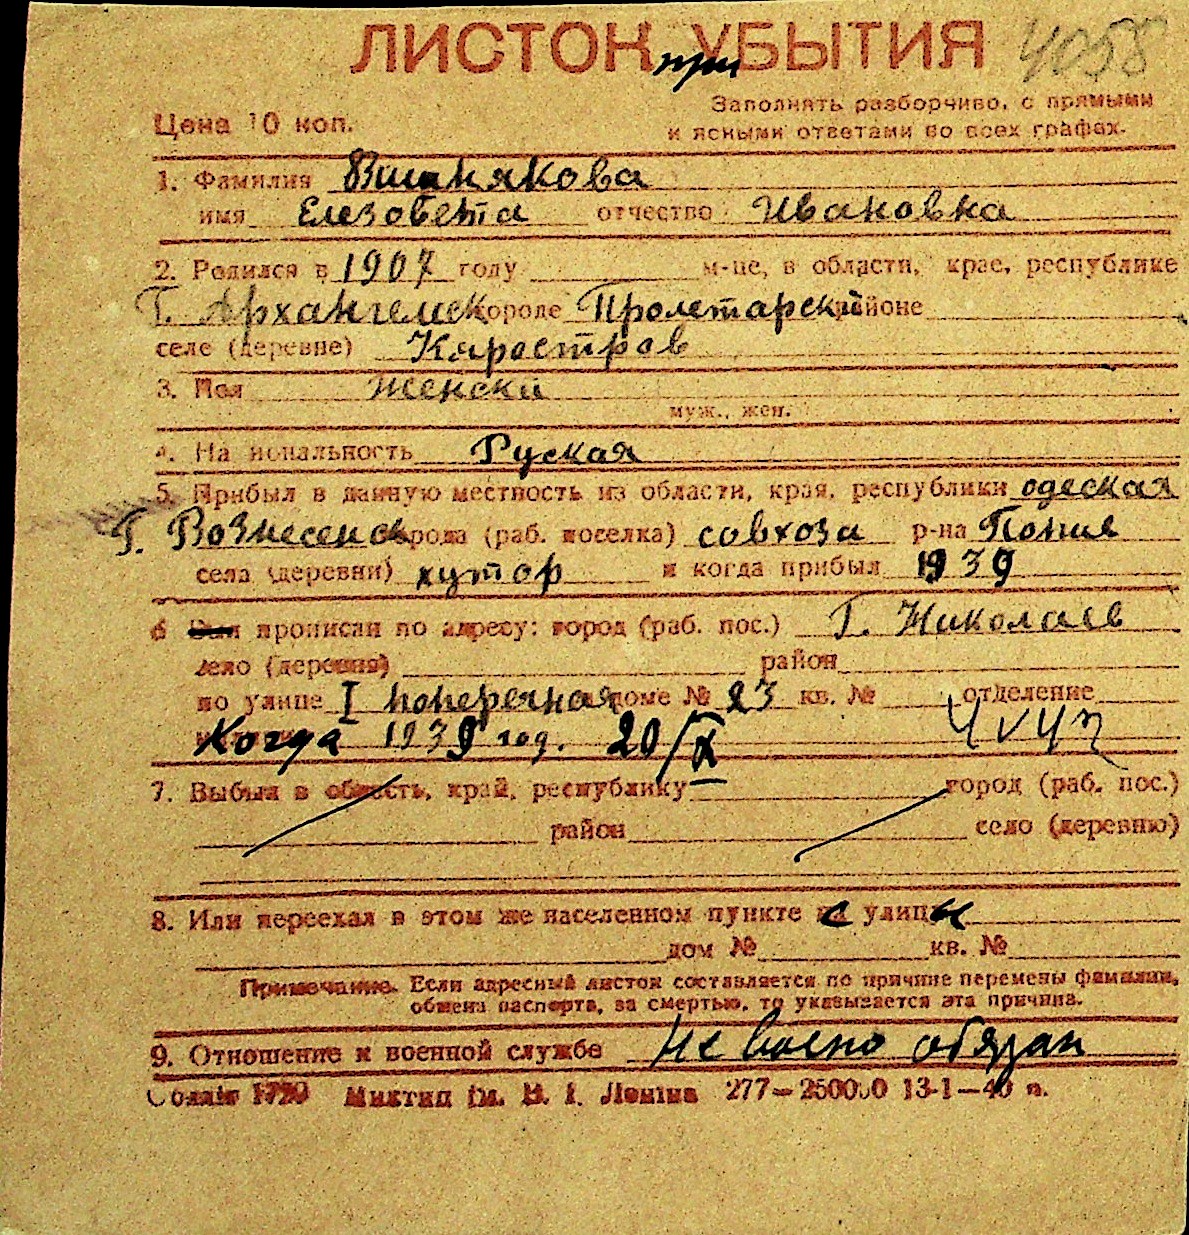 ЛИСТОК при УБЫТИЯ 4058
Заполнять разборчиво, с прямыми
Цена 10 коп. и ясными ответами во всех графах.
1. Фамилия Вишнякова
имя Елезовета отчество Ивановка
2. Родился в 1907 году м-це, в области, крае, республике
Г. Архангелск городе Пролетарский районе
селе (деревне) Кяростров
3. Пол Женски
муж., жен.
4. Национальность Руская
5. Прибыл в данную местность из области, края, республики одеская
Г. Вознесенск города (раб. поселка) совхоза р-на
села (деревни) хутор и когда прибыл 1939
6 прописан по адресу: город (раб. пос.) Г. Николаев
село (деревня) район
по улице I поперечная доме № 23 кв. № отделение
Когда 1939 год. 20/IX
7. Выбыл в область, край, республику город (раб. пос.)
район село (деревню)
8. Или переехал в этом же населенном пункте с улицы
дом № кв. №
Примечание. Если адресный листок составляется по причине перемены фамилии,
обмена паспорта, за смертью, то указывается эта причина.
9. Отношение к военной службе Не воено обязан
Миктип ім. В. І. Леніна 277—250000 13-1—40 п.